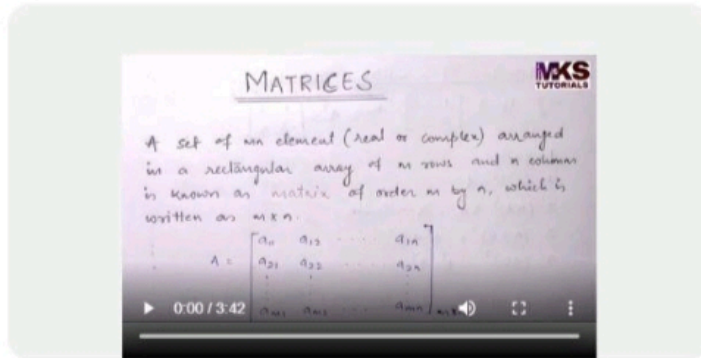 MATRICES
MKS
TUTORIALS
A set of mn element (real or complex) arranged
in a rectangular array of m rows and n column
is known as matrix of order m by n, which is
written as m x n.
A = a₁₁ a₁₂ ..... a₁ₙ
a₂₁ a₂₂ ..... a₂ₙ
0:00 / 3:42 aₘₙ